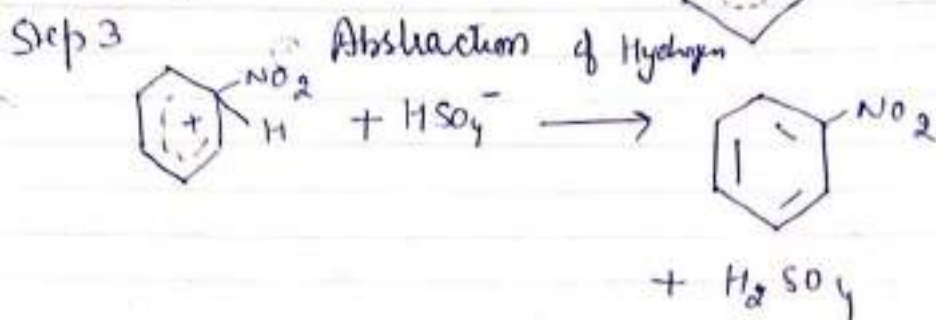 Step 3 Abstraction of Hydrogen
NO2
H + HSO4⁻ ⟶ NO2
+
+ H2SO4